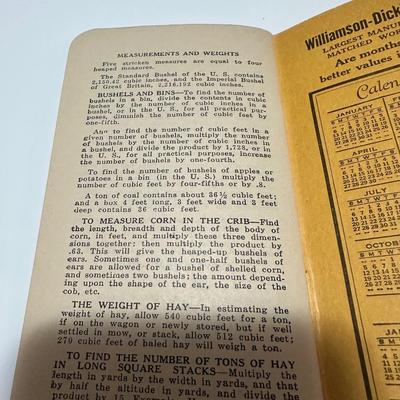 MEASUREMENTS AND WEIGHTS
Five stricken measures are equal to four
heaped measures.
The Standard Bushel of the U. S. contains
2,150.42 cubic inches, and the Imperial Bushel
of Great Britain, 2,216.192 cubic inches.
BUSHELS AND BINS—To find the number of
bushels in a bin, divide the contents in cubic
inches by the number of cubic inches in a
bushel, or in the U. S., for all practical pur-
poses, diminish the number of cubic feet by
one-fifth.
And to find the number of cubic feet in a
given number of bushels, multiply the number
of bushels by the number of cubic inches in
a bushel, and divide the product by 1,728, or in
the U. S., for all practical purposes, increase
the number of bushels by one-fourth.
To find the number of bushels of apples or
potatoes in a bin (in the U. S.) multiply the
number of cubic feet by four-fifths or by .8.
A ton of coal contains about 36½ cubic feet;
and a box 4 feet long, 3 feet wide and 3 feet
deep contains 36 cubic feet.
TO MEASURE CORN IN THE CRIB—Find
the length, breadth and depth of the body of
corn, in feet, and multiply these three dimen-
sions together; then multiply the product by
.63. This will give the heaped-up bushels of
ears. Sometimes one and one-half bushels of
ears are allowed for a bushel of shelled corn,
and sometimes two bushels; the amount depend-
ing upon the shape of the ear, the size of the
cob, etc.
THE WEIGHT OF HAY—In estimating the
weight of hay, allow 540 cubic feet for a ton,
if on the wagon or newly stored, but if well
settled in mow, or stack, allow 512 cubic feet;
270 cubic feet of baled hay will weigh a ton.
TO FIND THE NUMBER OF TONS OF HAY
IN LONG SQUARE STACKS—Multiply the
length in yards by the width in yards, and that
by half the altitude in yards, and divide the
product by 15.
Williamson-Dick
LARGEST MANU
MATCHED WOR
Are months
better values i
Calen
JANUARY
S M T W T F S
APRIL
S M T W T F S
JULY
S M T W T F S
OCTOB
S M T W T